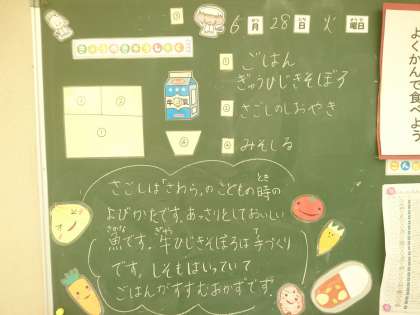 6月28日火曜日
きょうのきゅうしょく
① ごはん
ぎゅうひじきそぼろ
② さごしのしおやき
④ みそしる
③
① ②
①
牛乳
④
さごしは「さわら」のこどもの時のとき
よびかたです。あっさりとしておいしい
魚です。牛ひじきそぼろは手づくり
です。しそもはいっていて
ごはんがすすむおかずです。
よくかんで食べよう